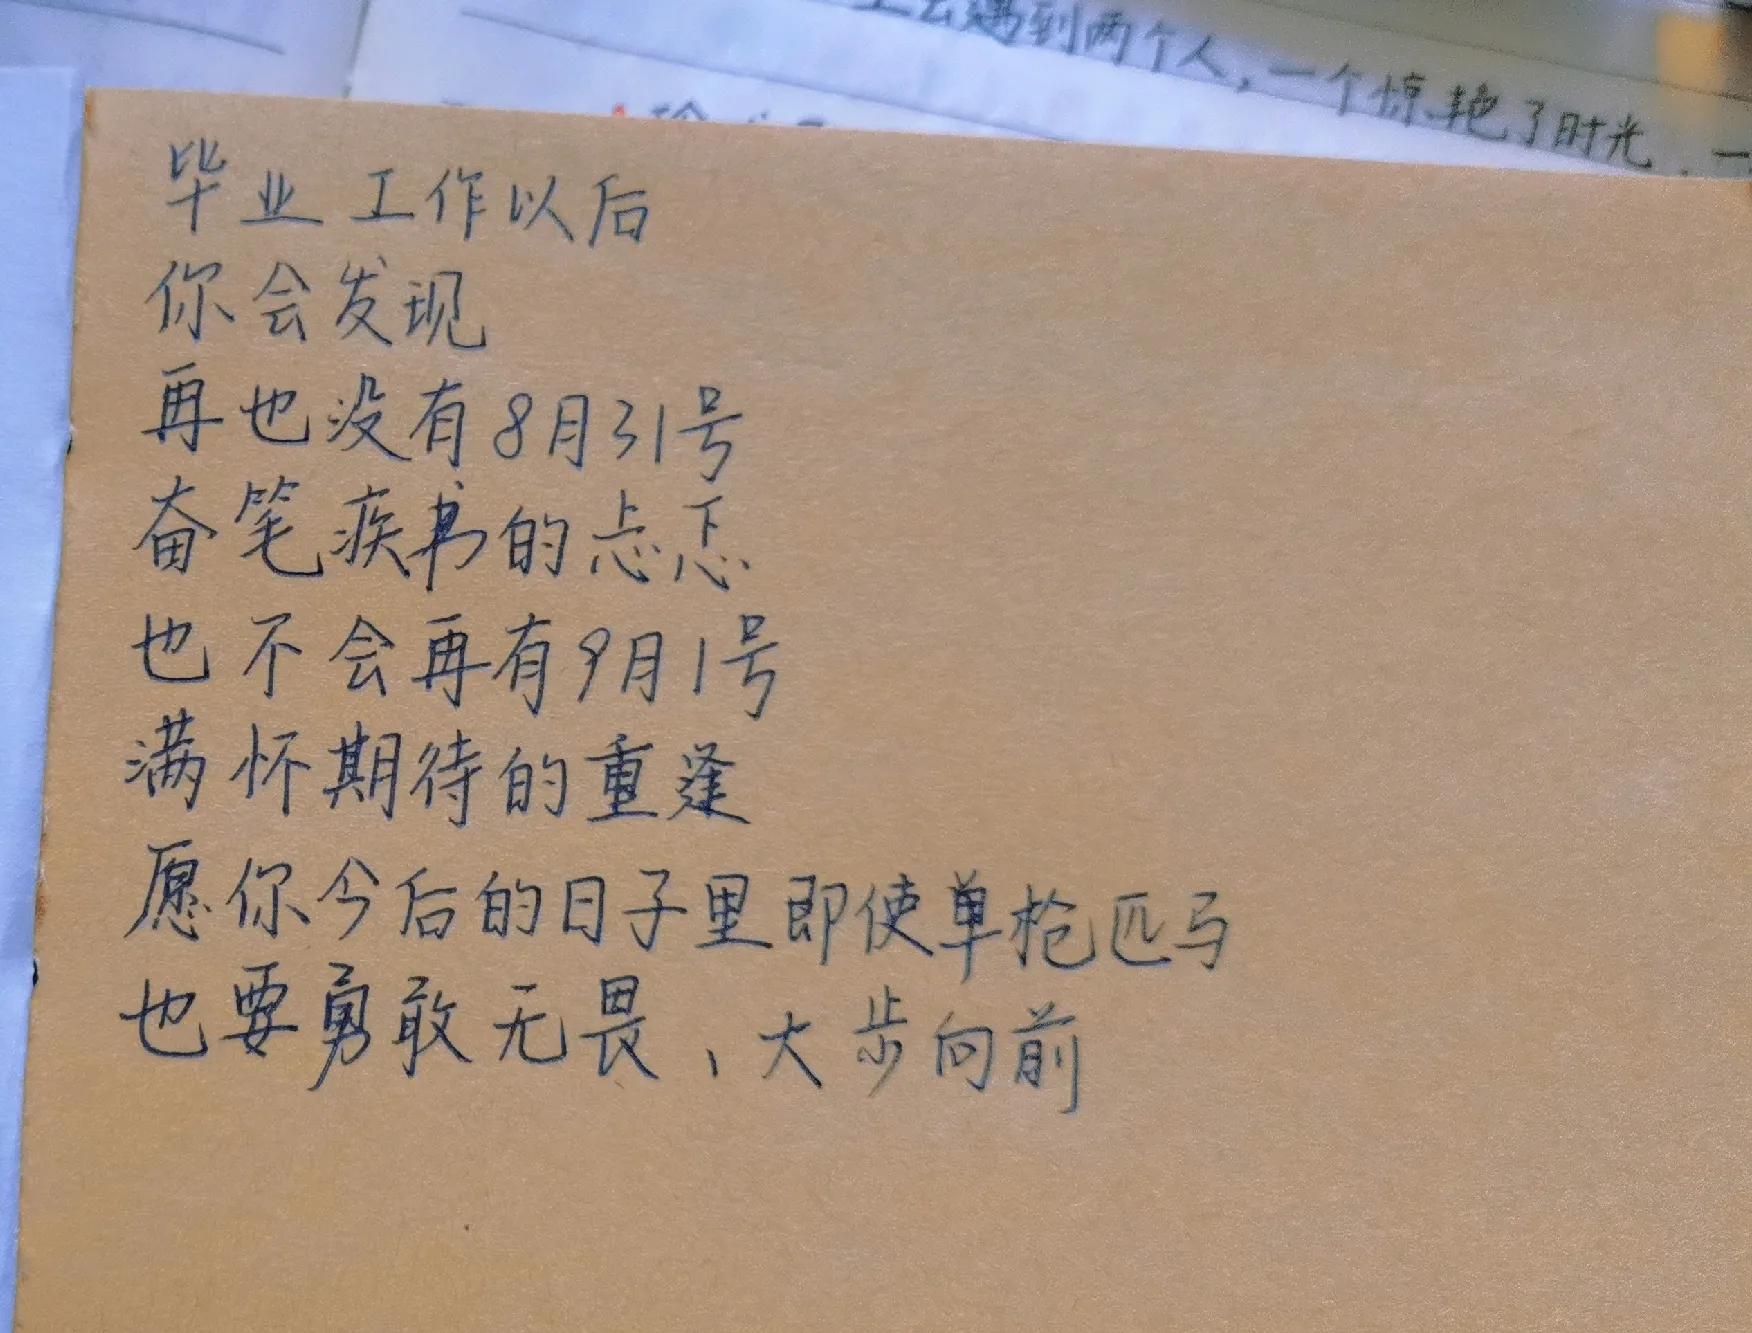 会遇到两个人，一个惊艳了时光，一
毕业工作以后
你会发现
再也没有8月31号
奋笔疾书的忐忑
也不会再有9月1号
满怀期待的重逢
愿你今后的日子里即使单枪匹马
也要勇敢无畏、大步向前